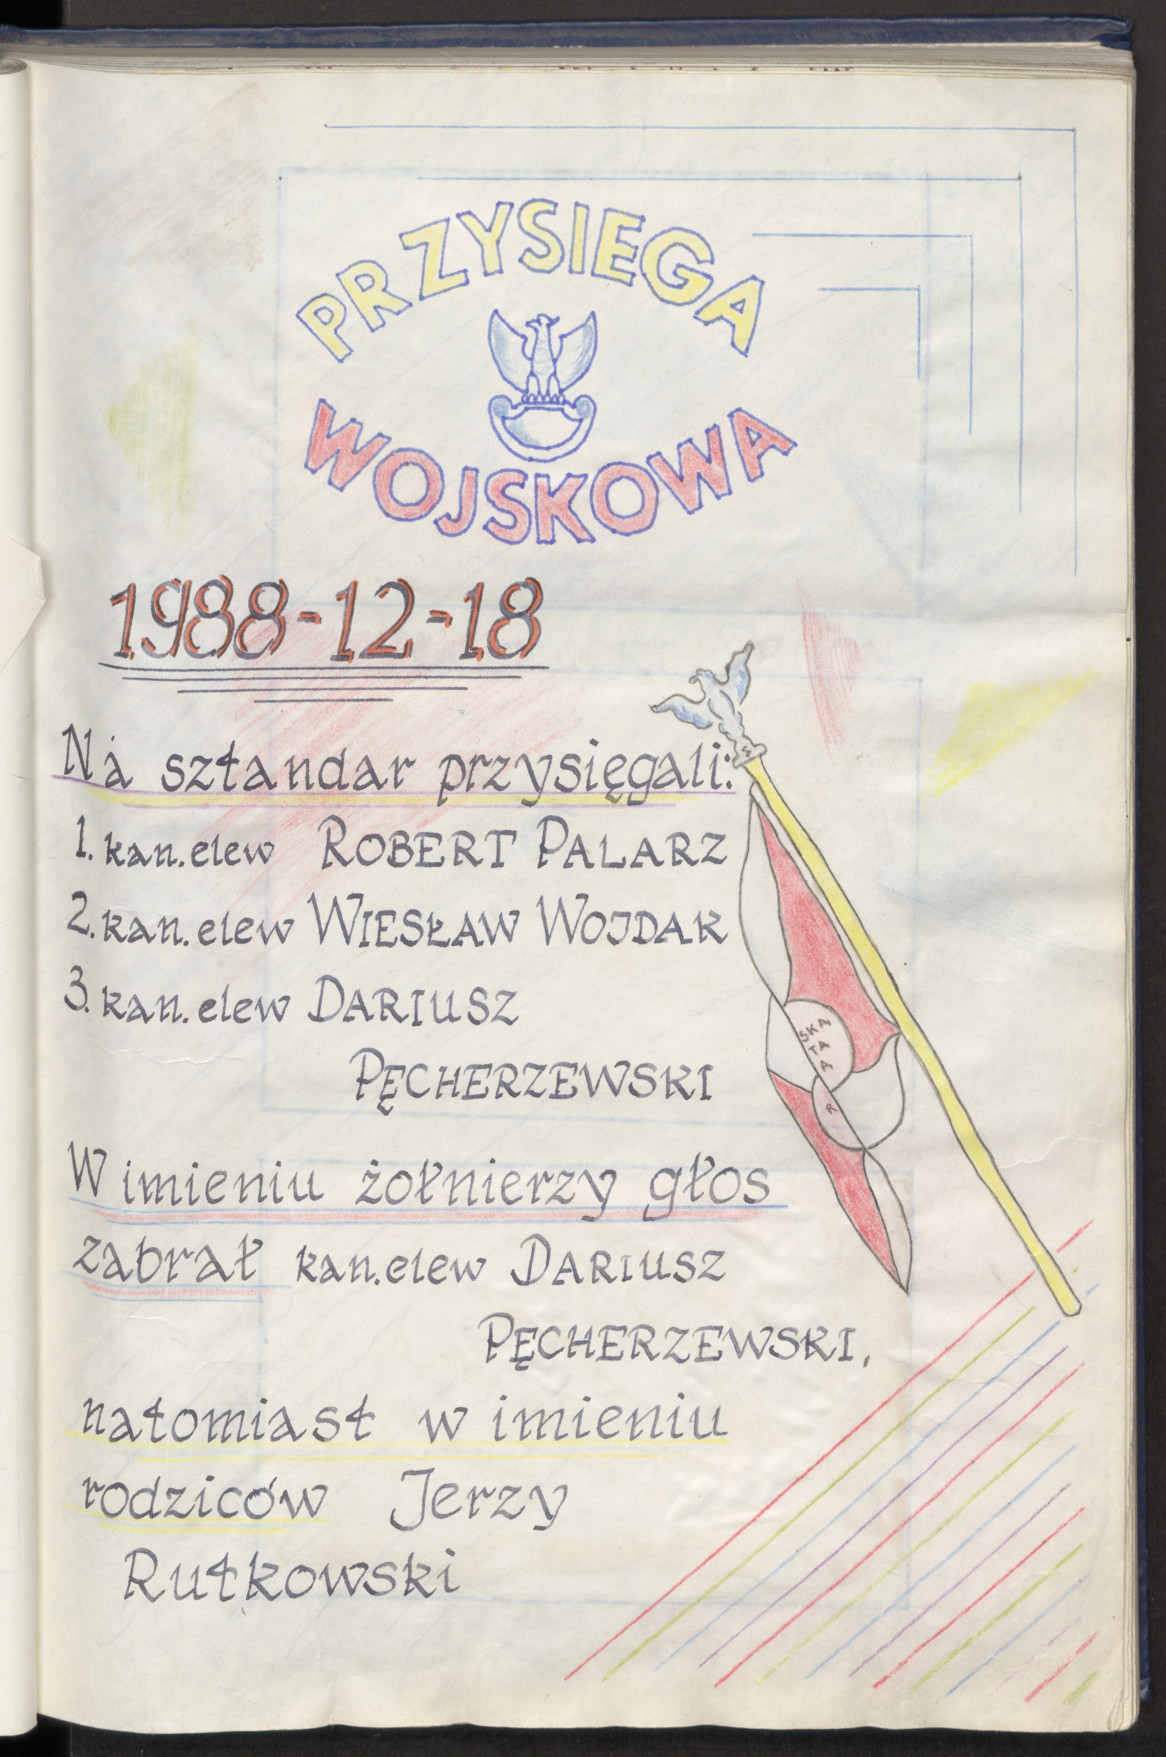 PRZYSIEGA
WOJSKOWA
1988-12-18
Na sztandar przysięgali:
1. kan. elew ROBERT PALARZ
2. kan. elew WIESŁAW WOJDAK
3. kan. elew DARIUSZ
PĘCHERZEWSKI
SKA
TA
R
W imieniu żołnierzy głos
zabrał kan. elew DARIUSZ
PĘCHERZEWSKI,
natomiast w imieniu
rodziców Jerzy
Rutkowski